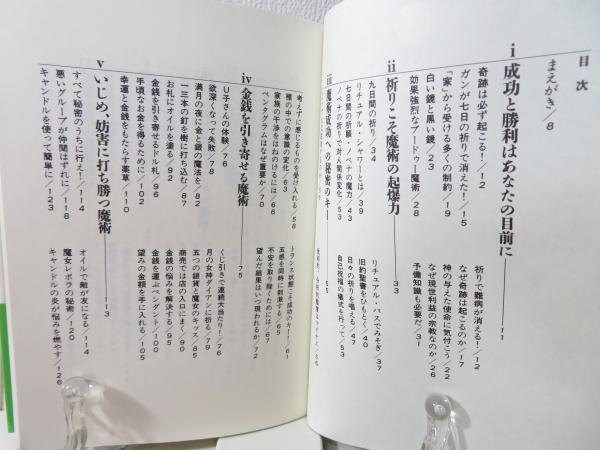 目次
まえがき／8
i 成功と勝利はあなたの目前に――11
奇跡は必ず起こる！／12
ガンが七日の祈りで消えた！／15
「家」から受ける多くの制約／19
白い鏡と黒い鏡／23
効果強烈なブードゥー魔術／28
祈りで難病が消える！／12
なぜ奇跡は起こるのか／17
神の与えた使命に気付こう／22
なぜ現世利益の宗教なのか／26
予備知識も必要だ／31
ii 祈りこそ魔術の起爆力――33
九日間の祈り／34
リチュアル・シャワーとは／39
七日間の祈願・ノベナの魔力／43
ノベナの祈りで対人関係変化／53
リチュアル・バスでみそぎ／37
旧約聖書をひもとく／40
日々の祈りを唱える／47
自己祝福の儀式を行って／53
iii 魔術成功への秘密のキー――
考えずに感じるものを受け入れる／58
種の中での意識の変化／63
家族の干渉をはねのけるには／66
ペンタグラムはなぜ重要か／70
トランス状態こそ成功のキー！／61
五感を同時に刺激する／65
不安を取り除くためには／67
望んだ結果はいつ現われるか／72
iv 金銭を引き寄せる魔術――75
U子さんの体験／76
欲深くなって失敗／78
満月の夜に金と銀の魔法を／82
一三本の釘を樹に打ち込む／87
お札にオイルを塗る／92
金銭を引き寄せるドル札／96
手頃なお金を得るために／102
幸運と金銭をもたらす薬草／110
くじ引きで連続大当たり！／76
月の女神ダイアンに祈る／79
五つの銀貨と魔女のキッス／85
商売では店の入口にまく／90
金銭の悩みを解決する／95
金銭を運ぶペンダント／100
望みの金額を手に入れる／105
v いじめ、妨害に打ち勝つ魔術――113
すべて秘密のうちに行え！／114
悪いグループが仲間はずれに／118
キャンドルを使って簡単に／123
オイルで敵が友になる／114
魔女レボラの秘術／120
キャンドルの炎が悩みを燃やす／126